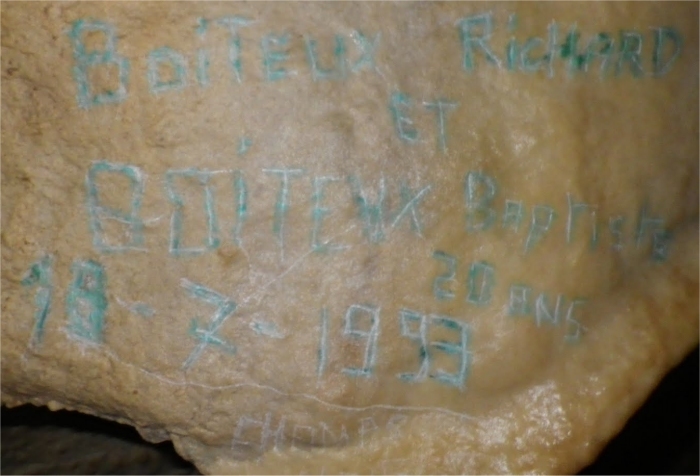 BOITEUX RICHARD
ET
BOITEUX Baptiste
20 ANS
18-7-1993